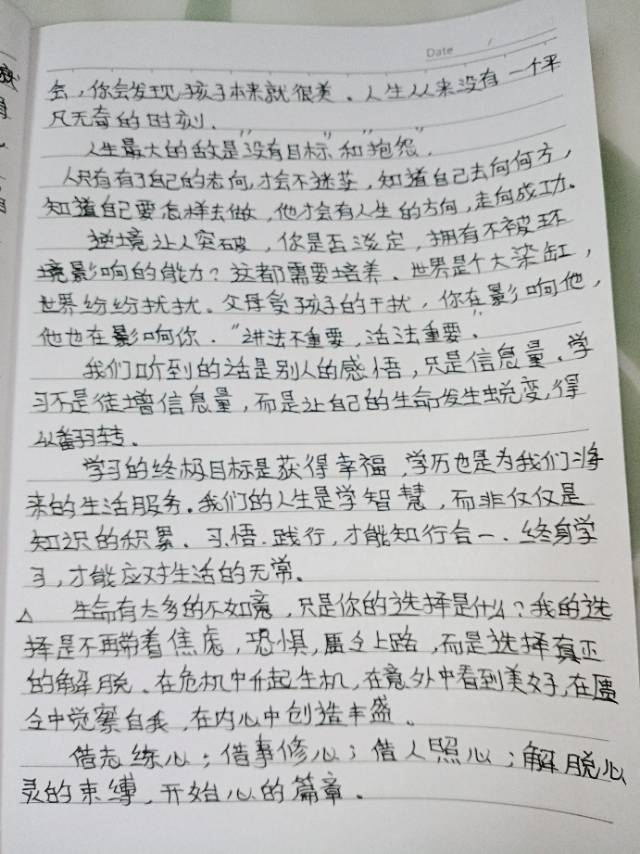 Date /
会，你会发现孩子本来就很美。人生从来没有一个平
凡无奇的时刻。
人生最大的敌是"没有目标"和"抱怨"。
人只有有了自己的志向，才会不迷茫，知道自己去向何方，
知道自己要怎样去做，他才会有人生的方向，走向成功。
逆境让人突破，你是否淡定，拥有不被环
境影响的能力？这都需要培养。世界是个大染缸，
世界纷纷扰扰。父母受孩子的干扰，你在影响他，
他也在影响你。"讲法不重要，活法重要"。
我们听到的话是别人的感悟，只是信息量。学
习不是徒增信息量，而是让自己的生命发生蜕变，得
以翻转。
学习的终极目标是获得幸福，学历也是为我们将
来的生活服务。我们的人生是学智慧，而非仅仅是
知识的积累、习.悟.践行，才能知行合一、终身学
习，才能应对生活的无常。
△ 生命有太多的不如意，只是你的选择是什么？我的选
择是不再带着焦虑，恐惧，匮乏上路，而是选择真正
的解脱。在危机中升起生机，在意外中看到美好，在匮
乏中觉察自我，在内心中创造丰盛。
借志练心；借事修心；借人照心；解脱心
灵的束缚，开始心的篇章。